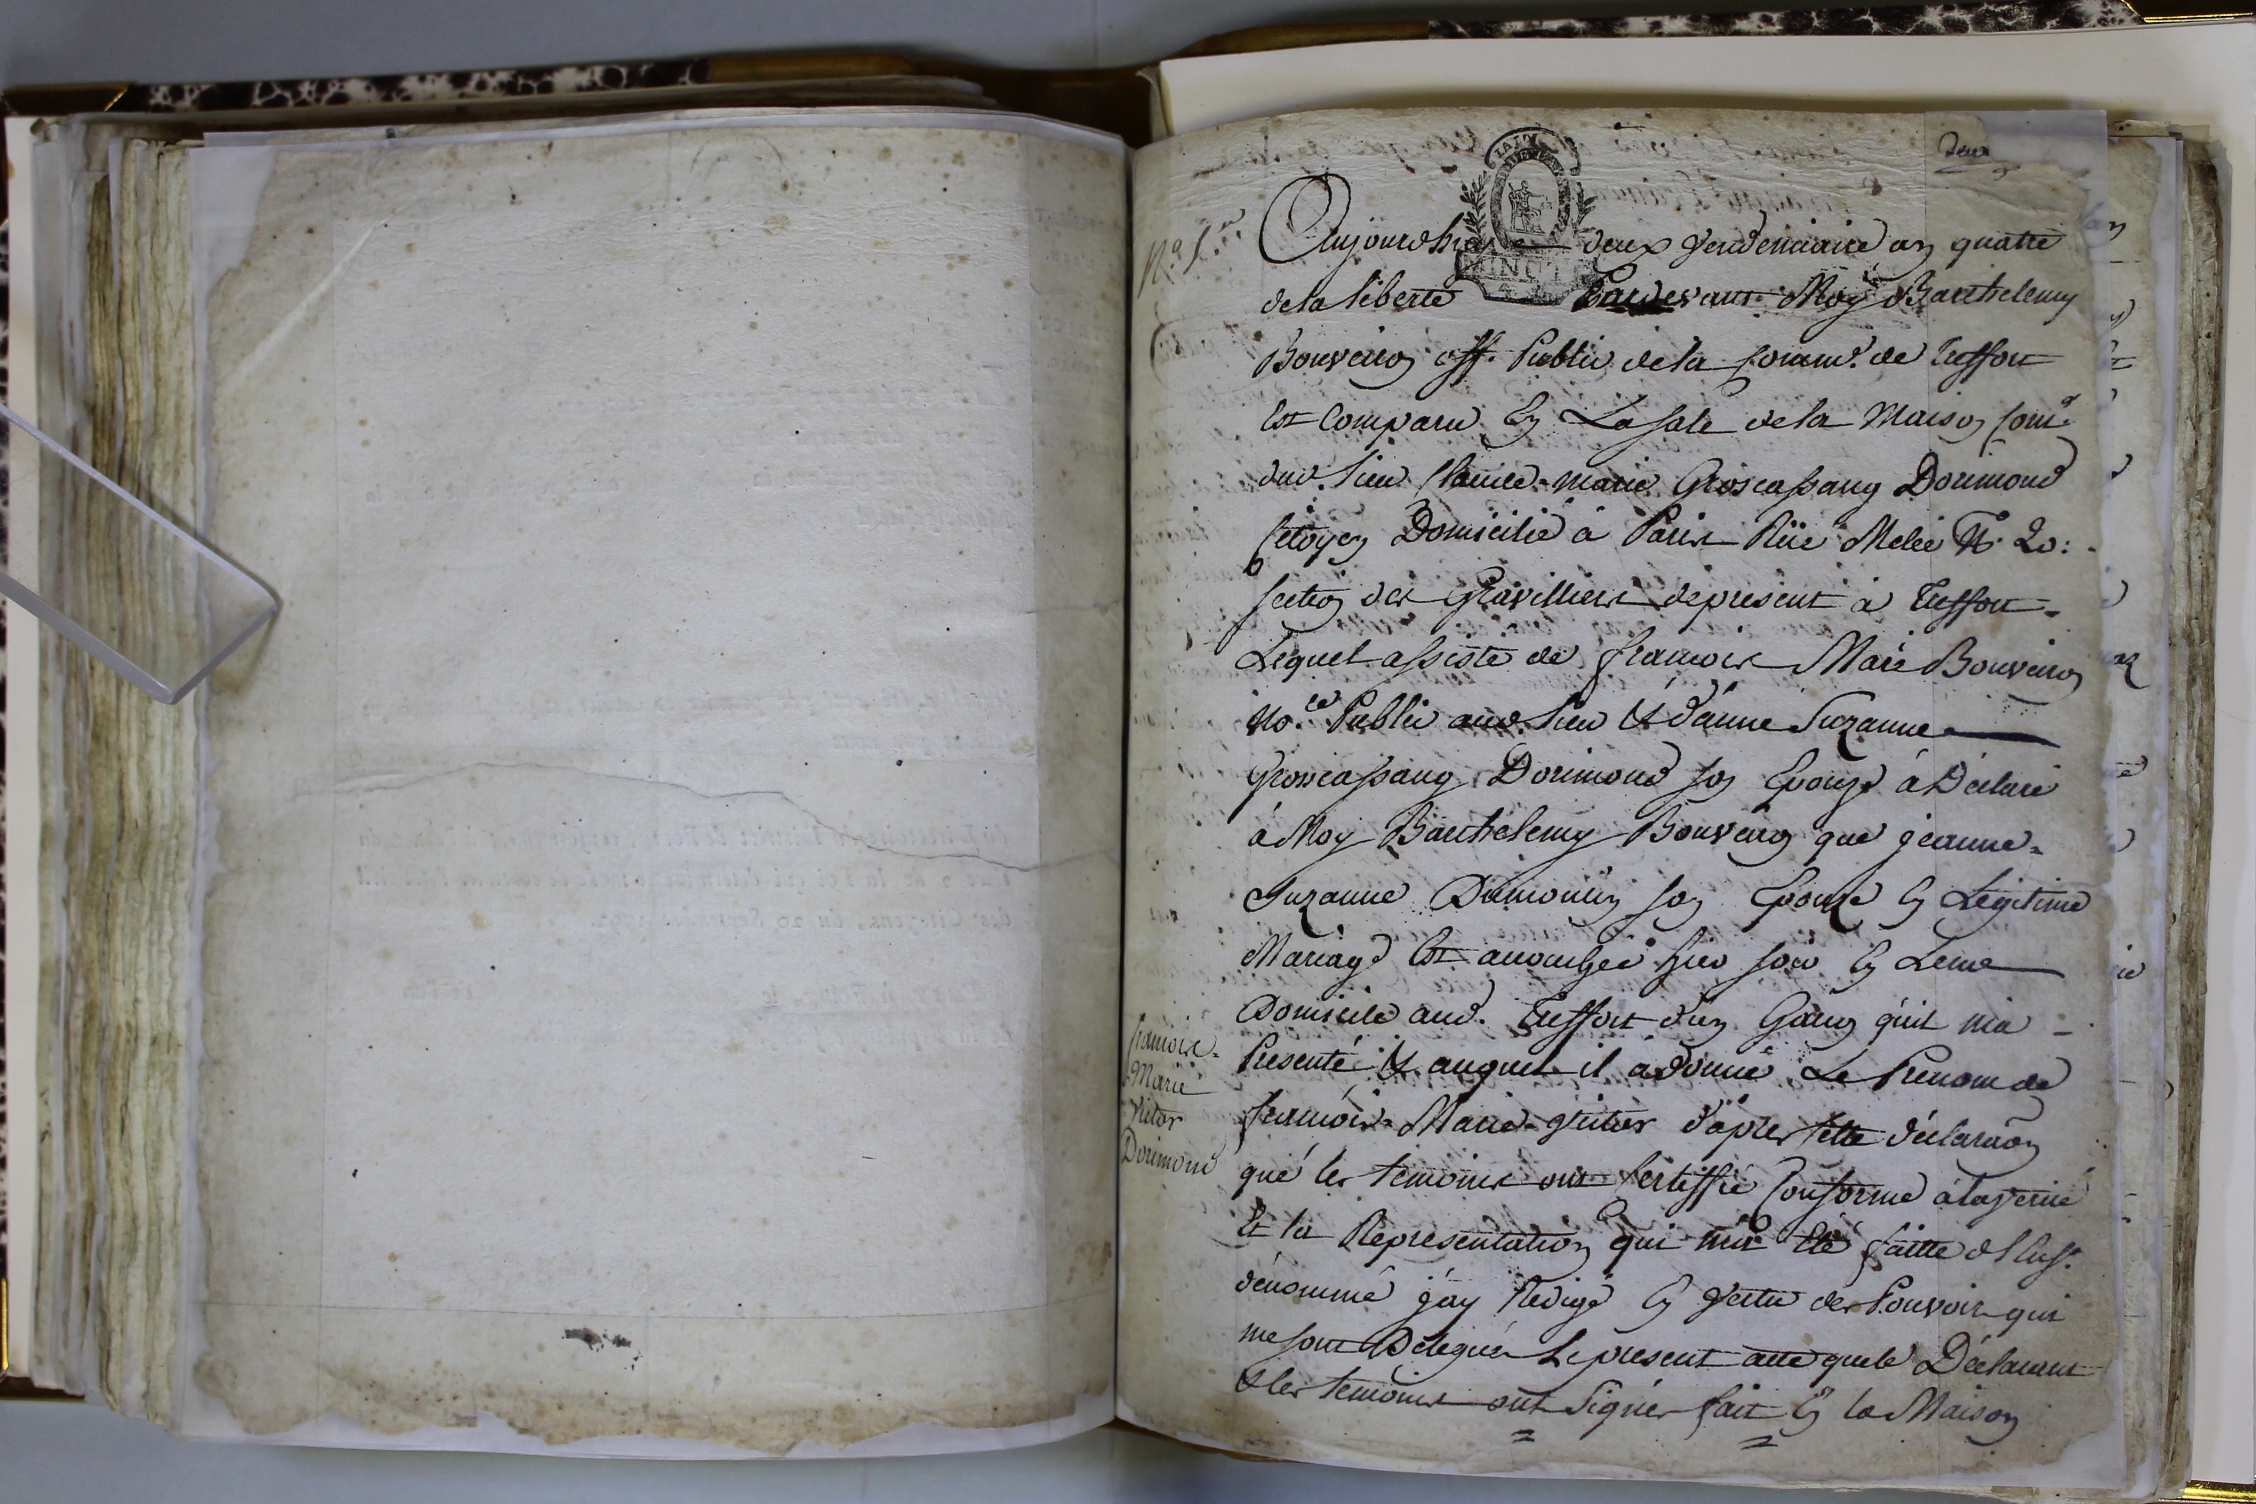 Deux
N.o 1.er
Aujourdhuy deux vendemiaire an quatre
de la liberté Pardevant Moy Barthelemy
Bouveiron off. Public de la Comm.e de Treffort
Est Comparu En La sale de la Maison Com.e
dud. lieu Claude-marie Groscassang Dorimond
Citoyen Domicilié à Paris Rüe Melée N.o 20:
section des Gravilliers depresent à Treffort
Lequel assisté de françois Marie Bouveiron
No.re Public aud. lieu & d'anne Suzanne
Groscassang Dorimond son Epouze à Déclaré
à Moy Barthelemy Bouveiron que jeanne=
Suzanne Dumoulin son Epouze En Légitime
Mariage Est accouchée hier soir En Leur
Domicile aud. Treffort d'un Garçon qu'il ma
Presenté & auquel il à donné Le Prenom de
françois-Marie-victor d'après Cette déclaraôn
que les temoins ont Certiffié Conforme à la verité
Et la Représentation qui m'a Eté faitte de l'enf.t
dénommé j'ay Redigé En vertu des Pouvoirs qui
me sont Délegués Le present acte que le Déclarant
& les temoins ont Signés fait En la Maison
françois=
Marie
Victor
Dorimond
MINUTE